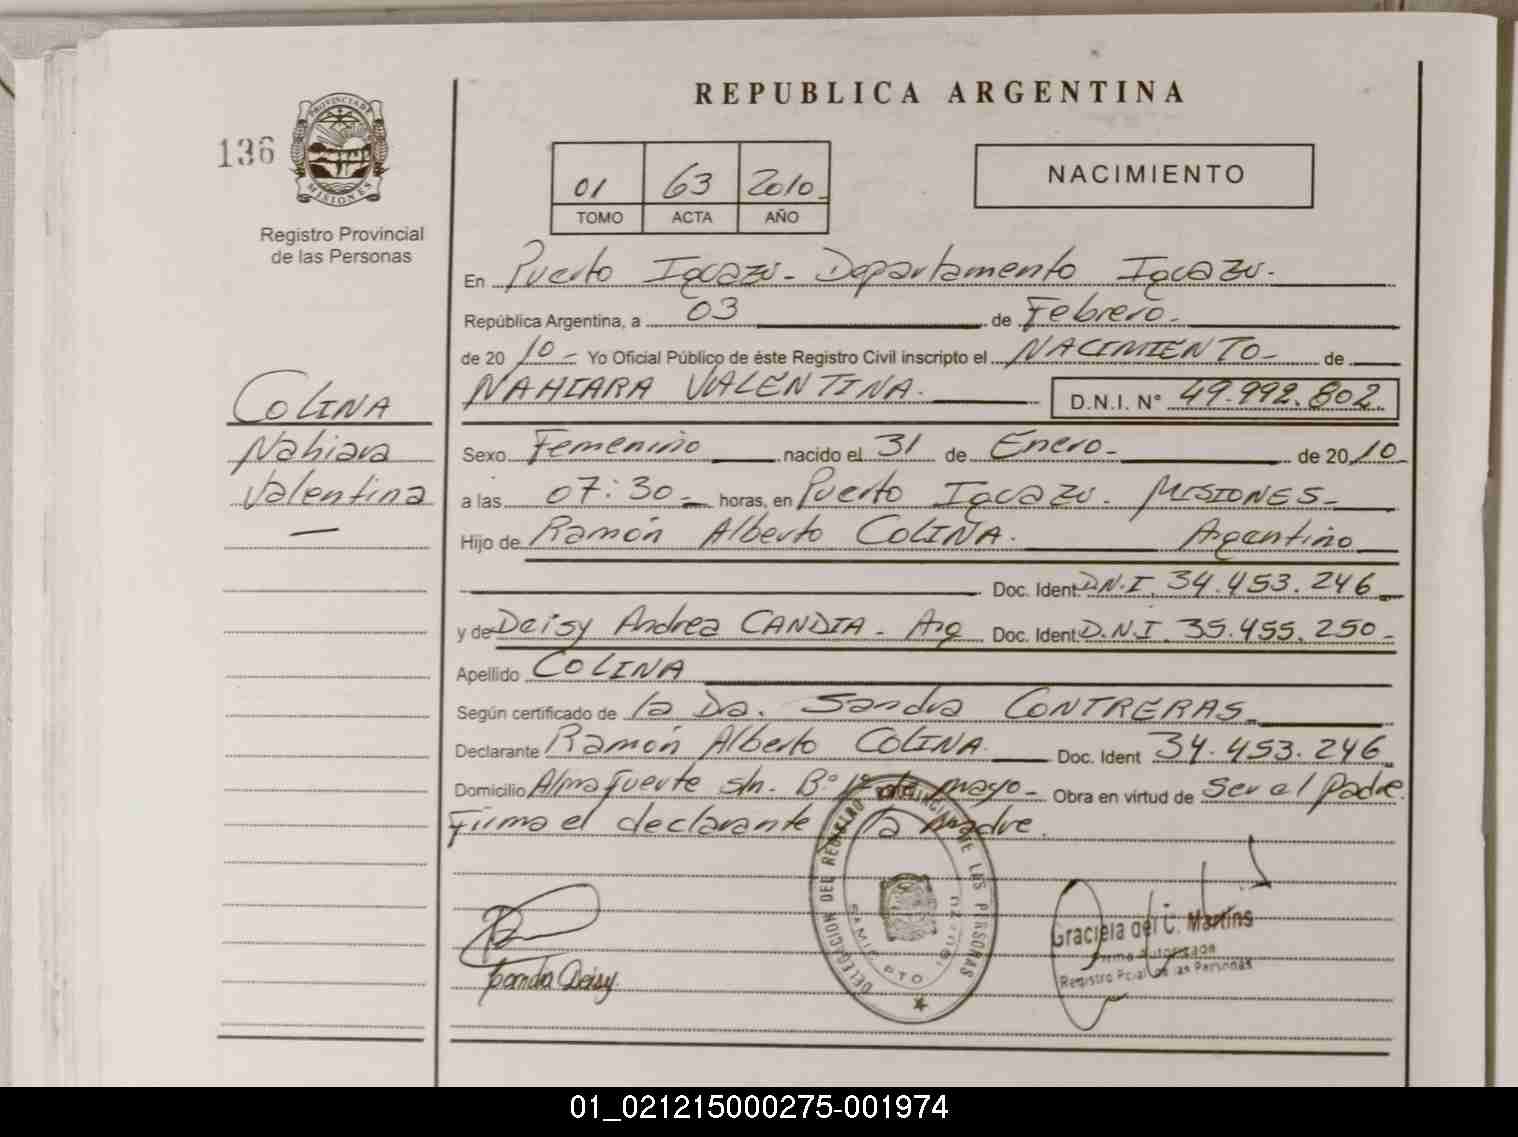 REPUBLICA ARGENTINA
136
PROVINCIA DE
MISIONES
Registro Provincial
de las Personas
01 63 2010
TOMO ACTA AÑO
NACIMIENTO
En Puerto Iguazú - Departamento Iguazu.
República Argentina, a 03 de Febrero.
de 20 10 - Yo Oficial Público de éste Registro Civil inscripto el NACIMIENTO de
NAHIARA VALENTINA. D.N.I. N° 49.992.802
COLINA
Nahiara
Valentina
Sexo Femenino nacido el 31 de Enero - de 20 10
a las 07:30 horas, en Puerto Iguazu. MISIONES
Hijo de Ramón Alberto COLINA. Argentino
Doc. Ident D.N.I. 34.453.246
y de Deisy Andrea CANDIA - Arg Doc. Ident D.N.I. 35.455.250
Apellido COLINA
Según certificado de la Da. Sandra CONTRERAS
Declarante Ramón Alberto COLINA. Doc. Ident 34.453.246
Domicilio Almafuerte s/n. B° 1° de mayo - Obra en virtud de Ser el Padre.
Firma el declarante y la madre.
DELEGACION DEL REGISTRO PROVINCIAL DE LAS PERSONAS
Deisy.
Graciela del C. Martins
Registro Pcial de las Personas
01_021215000275-001974